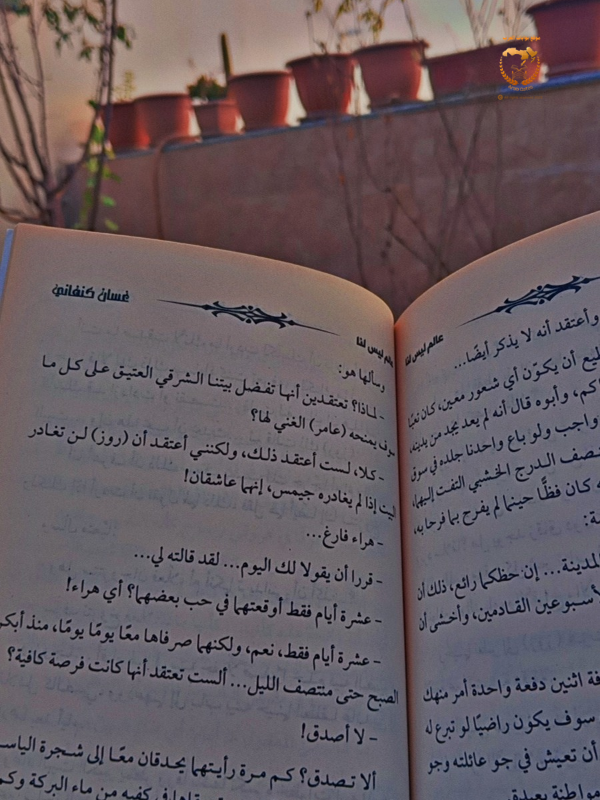 عالم ليس لنا
وأعتقد أنه لا يذكر أيضًا...
أن يكوّن أي شعور معين، كان
وأبوه قال أنه لم يعد يجد من يدينه،
واجب ولو باع واحدنا جلده في سوق
الدرج الخشبي التفت إليهما،
كان فظًّا حينما لم يفرح بما فرحا به،
المدينة... إن حظكما رائع، ذلك أن
القادمين، وأخشى أن
اثنين دفعة واحدة أمر منهك
سوف يكون راضيًا لو تبرع له
أن تعيش في جو عائلته وجو
غسان كنفاني
عالم ليس لنا
وسألها هو:
- لماذا؟ تعتقدين أنها تفضل بيتنا الشرقي العتيق على كل ما
سوف يمنحه (عامر) الغني لها؟
- كلا، لست أعتقد ذلك، ولكنني أعتقد أن (روز) لن تغادر
البيت إذا لم يغادره جيمس، إنهما عاشقان!
- هراء فارغ...
- قررا أن يقولا لك اليوم... لقد قالته لي...
- عشرة أيام فقط أوقعتهما في حب بعضهما؟ أي هراء!
- عشرة أيام فقط، نعم، ولكنهما صرفاها معًا يومًا يومًا، منذ
الصبح حتى منتصف الليل... ألست تعتقد أنها كانت فرصة كافية؟
- لا أصدق!
ألا تصدق؟ كم مرة رأيتهما يحدقان معًا إلى شجرة
في كفيه من ماء البركة